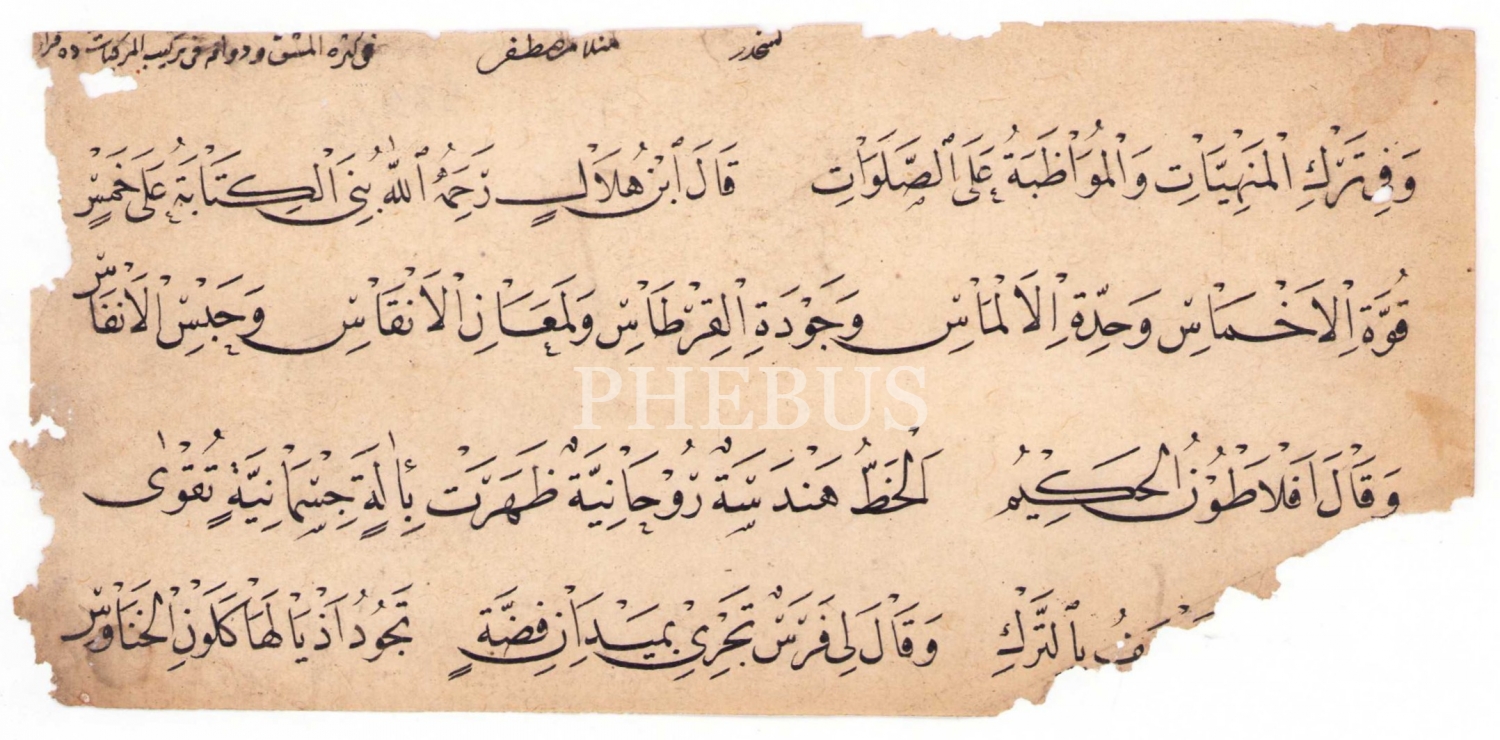 في كثرة المشق ودوامه في تركيب المركبات منلا مصطفى
وَفِي تَرْكِ الْمَنْهِيَّاتِ وَالْمُوَاظَبَةُ عَلَى الصَّلَوَاتِ قَالَ ابْنُ هِلَالٍ رَحِمَهُ اللهُ بُنِيَ الْكِتَابَةُ عَلَى خَمْسٍ
قُوَّةِ الْاَخْمَاسِ وَحِدَّةِ الْاَلْمَاسِ وَجَوْدَةِ الْقِرْطَاسِ وَلَمَعَانِ الْاَنْقَاسِ وَحَبْسِ الْاَنْفَاسِ
PHEBUS
وَقَالَ اَفْلَاطُونُ الْحَكِيمُ اَلْخَطُّ هَنْدَسَةٌ رُوْحَانِيَّةٌ ظَهَرَتْ بِاٰلَةٍ جِسْمَانِيَّةٍ تُقْوٰى
بِالتَّرْكِ وَقَالَ لِي فَرَسٌ تَجْرِيْ بِمَيْدَانِ فِضَّةٍ تَجُودُ اَذْيَالُهَا كَلَوْنِ الْحَنَاوِسِ